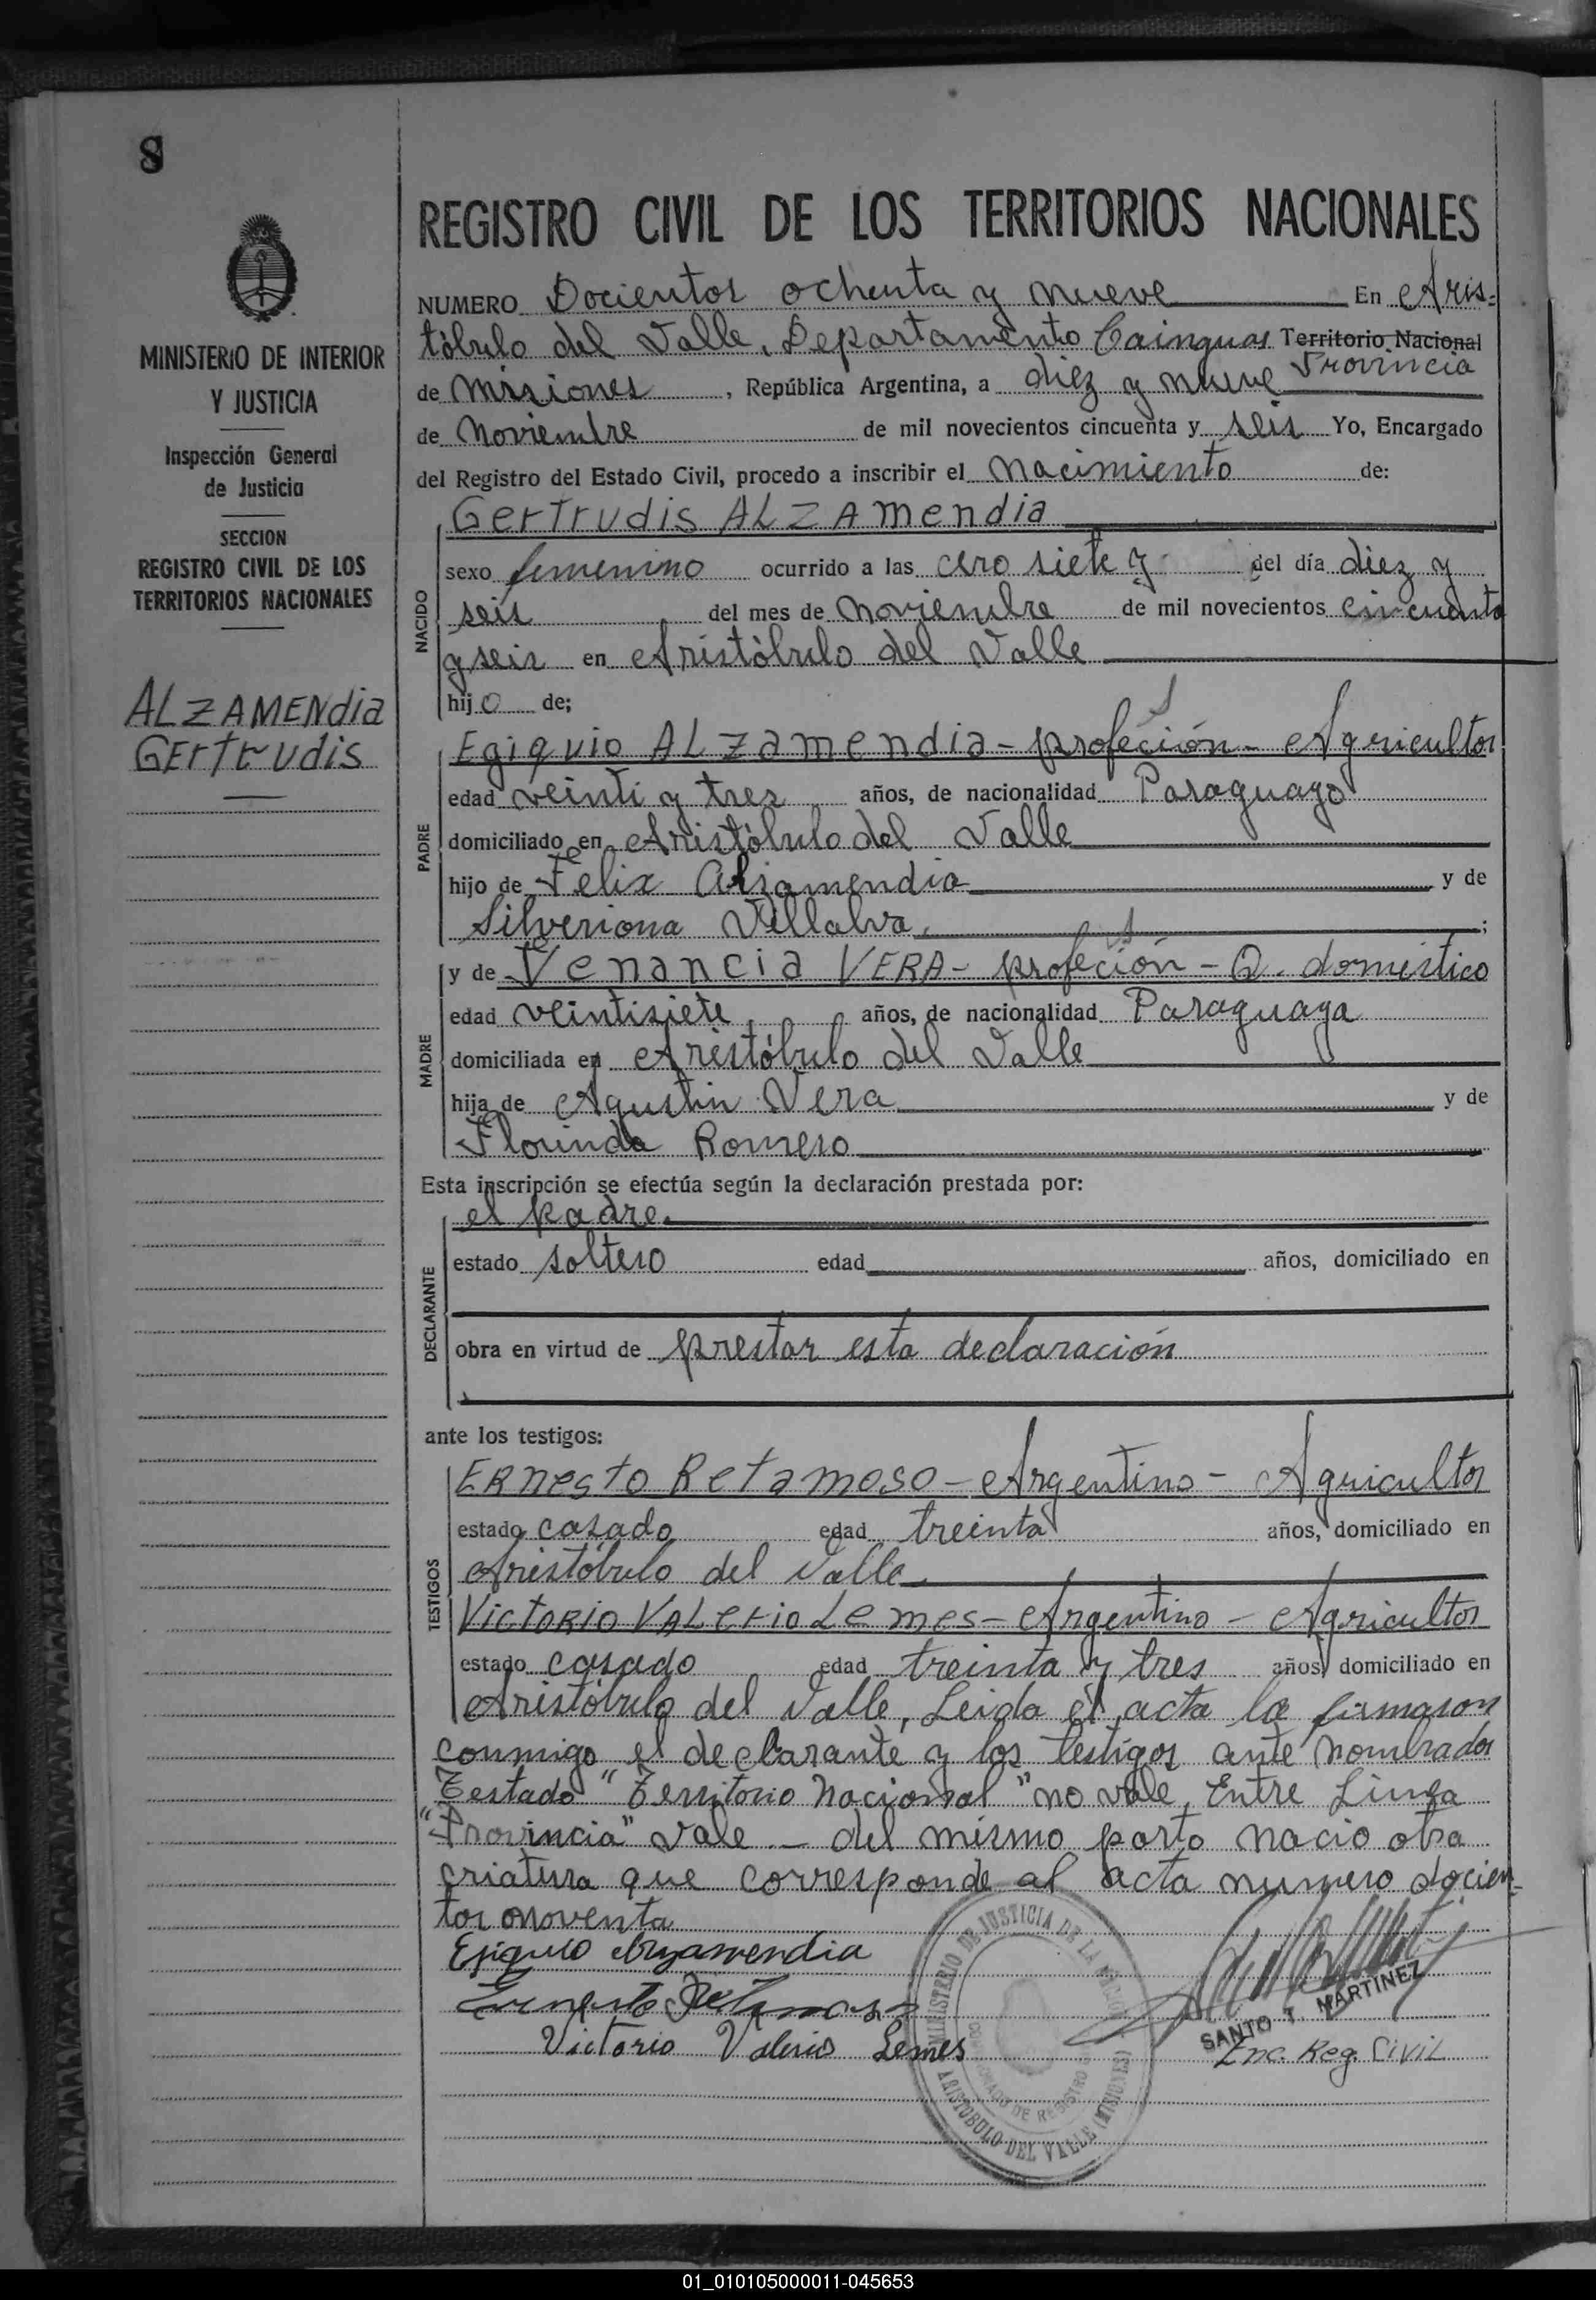 8
MINISTERIO DE INTERIOR
Y JUSTICIA
Inspección General
de Justicia
SECCION
REGISTRO CIVIL DE LOS
TERRITORIOS NACIONALES
ALZAMENdia
GErtrudis
REGISTRO CIVIL DE LOS TERRITORIOS NACIONALES
NUMERO Docientos ochenta y nueve En Aris-
tòbulo del Valle, Departamento Cainguas Territorio Nacional
Provincia
de Misiones, República Argentina, a diez y nueve
de Noviembre de mil novecientos cincuenta y seis Yo, Encargado
del Registro del Estado Civil, procedo a inscribir el Nacimiento de:
NACIDO
Gertrudis ALZAmendia
sexo femenino ocurrido a las cero siete y del día diez y
seis del mes de Noviembre de mil novecientos cincuenta
y seis en Aristòbulo del Valle
hijo de;
PADRE
Egiquio ALzamendia - profeción - Agricultor
edad veinti y tres años, de nacionalidad Paraguayo
domiciliado en Aristòbulo del Valle
hijo de Felix Alzamendia y de
Silveriana Villalva, ;
MADRE
y de Venancia VERA - profeción - Q. domestico
edad veintisiete años, de nacionalidad Paraguaya
domiciliada en Aristóbulo del Valle
hija de Agustin Vera y de
Florinda Romero
Esta inscripción se efectúa según la declaración prestada por:
DECLARANTE
el padre.
estado soltero edad años, domiciliado en
obra en virtud de prestar esta declaración
ante los testigos:
TESTIGOS
ERnesto Retamoso - Argentino - Agricultor
estado casado edad treinta años, domiciliado en
Aristóbulo del Valle
VictoRio VALerio Lemes - Argentino - Agricultor
estado casado edad treinta y tres años, domiciliado en
Aristóbulo del Valle, Leida el acta la firmaron
conmigo el declarante y los testigos ante nombrados
Testado "Territorio Nacional" no vale, Entre Linea
"Provincia" vale - del mismo parto nacio otra
criatura que corresponde al acta numero docien-
tos noventa
Egiquio Alzamendia
Ernesto Retamoso
Victorio Valerio Lemes
MINISTERIO DE JUSTICIA DE LA NACION
ARISTOBULO DEL VALLE (MISIONES)
SANTO T. MARTINEZ
Enc. Reg. Civil
01_010105000011-045653